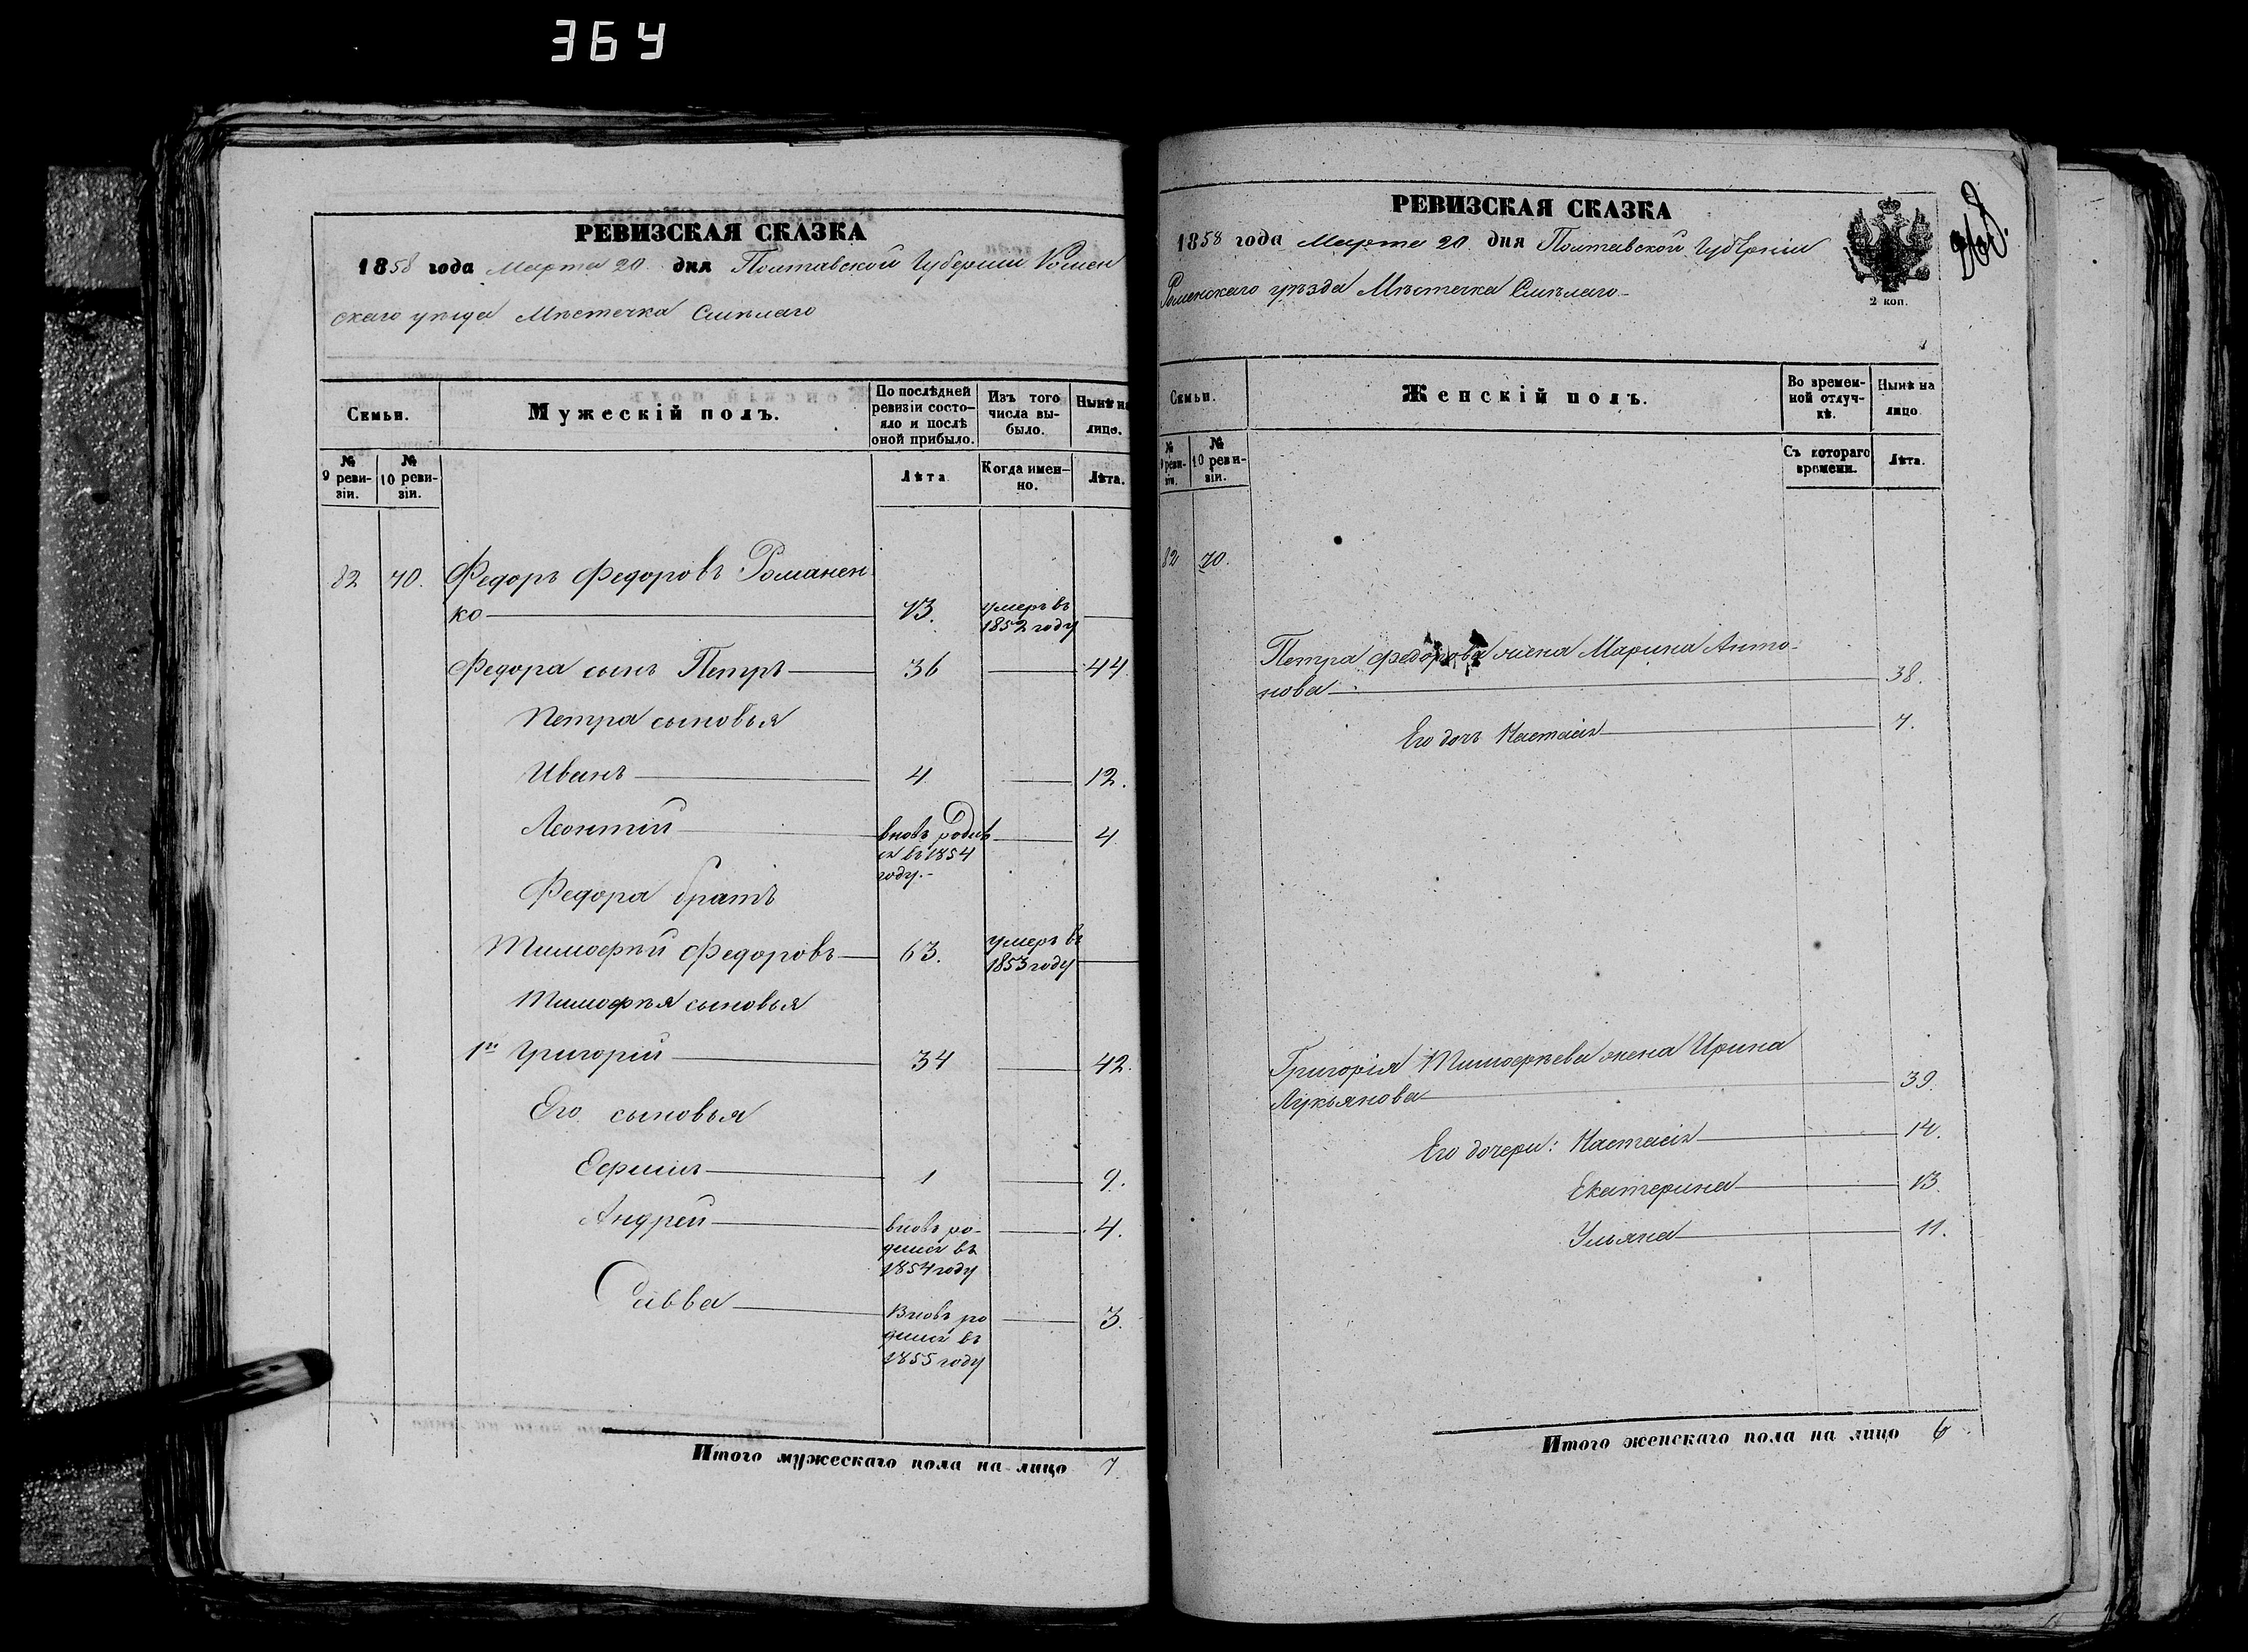 364
РЕВИЗСКАЯ СКАЗКА
1858 года Марта 20 дня Полтавской Губерніи Ромен
скаго уѣзда Мѣстечка Смѣлаго
Семьи.
Мужескій полъ.
По послѣдней
ревизіи состо-
яло и послѣ
оной прибыло.
Изъ того
числа вы-
было.
Нынѣ на
лицо.
№
9 реви-
зіи.
№
10 реви-
зіи.
Лѣта
Когда имен-
но.
Лѣта.
82 70. Федоръ Федоровъ Романен
ко 73. умеръ въ
1852 году
Федора сынъ Петръ 36 44
Петра сыновья
Иванъ 4 12.
Леонтій вновь родил 4
ся въ 1854
году.-
Федора братъ
Тимофѣй Федоровъ 63. умеръ въ
1853 году
Тимофѣя сыновья
1й Григорій 34 42.
Его сыновья
Ефимъ 1 9.
Андрей вновь ро- 4.
дился въ
1854 году
Савва Вновь ро 3.
дился въ
1855 году
Итого мужескаго пола на лицо 7
РЕВИЗСКАЯ СКАЗКА
1858 года Марта 20 дня Полтавской Губѣрніи
Роменскаго уѣзда Мѣстечка Смѣлаго
2 коп.
Семьи.
Женскій полъ.
Во времен-
ной отлуч-
кѣ.
Нынѣ на
лицо
№
9 реви-
зіи.
№
10 реви-
зіи.
Съ котораго
времени.
Лѣта.
82 70.
Петра Федорова жена Марина Анто-
нова 38.
Его дочь Настасія 7.
Григорія Тимофѣева жена Ирина
Лукьянова 39.
Его дочери: Настасія 14.
Екатерина 13.
Ульяна 11.
Итого женскаго пола на лицо 6